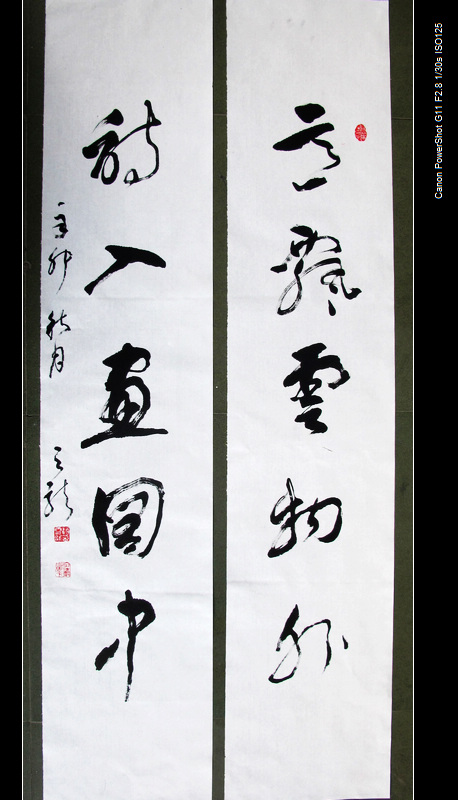 意飄雲物外
詩入畫圖中
辛卯秋月
Canon PowerShot G11 F2.8 1/30s ISO125